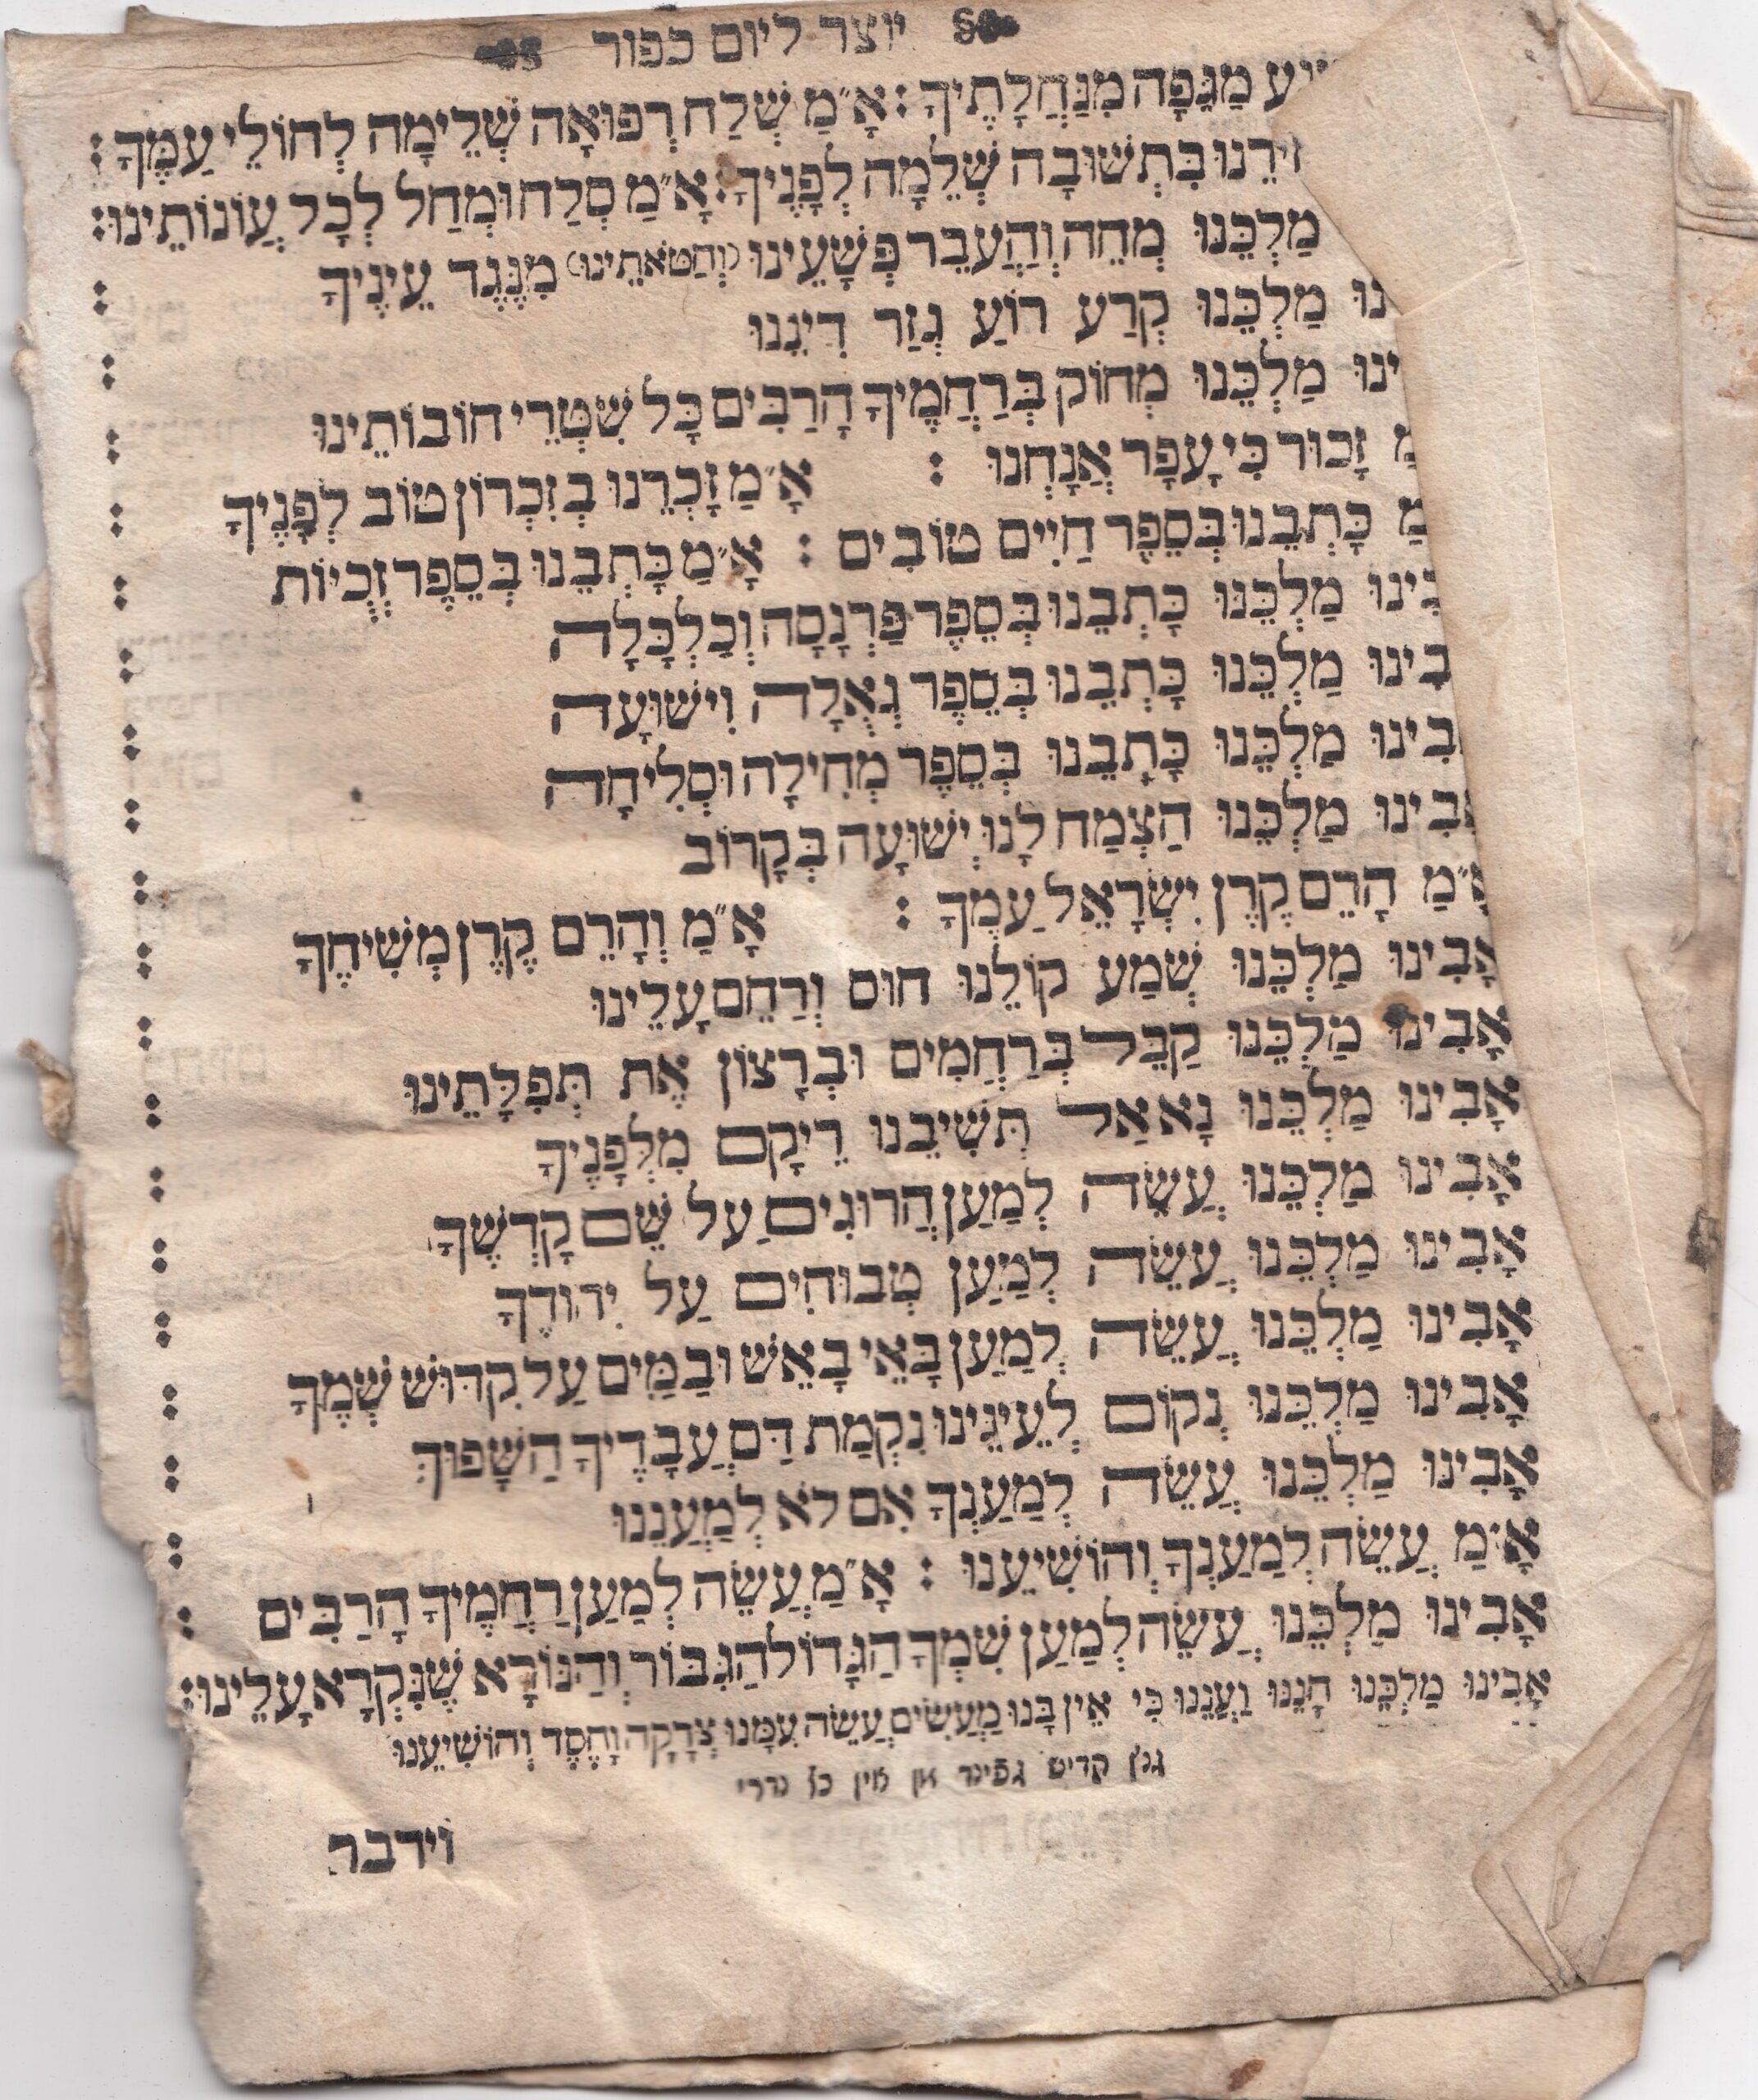 יוצר ליום כפור
מַגֵּפָה מִנַּחֲלָתֶיךָ : אָ״מַ שְׁלַח רְפוּאָה שְׁלֵימָה לְחוֹלֵי עַמֶּךָ :
זִירֵנוּ בִּתְשׁוּבָה שְׁלֵמָה לְפָנֶיךָ : אָ״מַ סְלַח וּמְחַל לְכָל עֲוֹנוֹתֵינוּ :
מַלְכֵּנוּ מְחֵה וְהַעֲבֵר פְּשָׁעֵינוּ (וְחַטֹּאתֵינוּ) מִנֶּגֶד עֵינֶיךָ :
נוּ מַלְכֵּנוּ קְרַע רוֹעַ גְּזַר דִּינֵנוּ :
ינוּ מַלְכֵּנוּ מְחוֹק בְּרַחֲמֶיךָ הָרַבִּים כָּל שִׁטְרֵי חוֹבוֹתֵינוּ :
מַ זָכוּר כִּי עָפָר אֲנָחְנוּ : אָ״מַ זָכְרֵנוּ בְּזִכְרוֹן טוֹב לְפָנֶיךָ :
מַ כָּתְבֵנוּ בְּסֵפֶר חַיִּים טוֹבִים : אָ״מַ כָּתְבֵנוּ בְּסֵפֶר זְכִיּוֹת :
בִינוּ מַלְכֵּנוּ כָּתְבֵנוּ בְּסֵפֶר פַּרְנָסָה וְכַלְכָּלָה :
בִינוּ מַלְכֵּנוּ כָּתְבֵנוּ בְּסֵפֶר גְּאֻלָּה וִישׁוּעָה :
בִינוּ מַלְכֵּנוּ כָּתְבֵנוּ בְּסֵפֶר מְחִילָה וּסְלִיחָה :
אָבִינוּ מַלְכֵּנוּ הַצְמַח לָנוּ יְשׁוּעָה בְּקָרוֹב :
אָ״מַ הָרֵם קֶרֶן יִשְׂרָאֵל עַמֶּךָ : אָ״מַ וְהָרֵם קֶרֶן מְשִׁיחֶךָ :
אָבִינוּ מַלְכֵּנוּ שְׁמַע קוֹלֵנוּ חוּס וְרַחֵם עָלֵינוּ :
אָבִינוּ מַלְכֵּנוּ קַבֵּל בְּרַחֲמִים וּבְרָצוֹן אֶת תְּפִלָּתֵינוּ :
אָבִינוּ מַלְכֵּנוּ נָא אַל תְּשִׁיבֵנוּ רֵיקָם מִלְּפָנֶיךָ :
אָבִינוּ מַלְכֵּנוּ עֲשֵׂה לְמַעַן הֲרוּגִים עַל שֵׁם קָדְשֶׁךָ :
אָבִינוּ מַלְכֵּנוּ עֲשֵׂה לְמַעַן טְבוּחִים עַל יִחוּדֶךָ :
אָבִינוּ מַלְכֵּנוּ עֲשֵׂה לְמַעַן בָּאֵי בָאֵשׁ וּבַמַּיִם עַל קִדּוּשׁ שְׁמֶךָ :
אָבִינוּ מַלְכֵּנוּ נְקוֹם לְעֵינֵינוּ נִקְמַת דַּם עֲבָדֶיךָ הַשָּׁפוּךְ :
אָבִינוּ מַלְכֵּנוּ עֲשֵׂה לְמַעַנְךָ אִם לֹא לְמַעֲנֵנוּ :
אָ״מַ עֲשֵׂה לְמַעַנְךָ וְהוֹשִׁיעֵנוּ : אָ״מַ עֲשֵׂה לְמַעַן רַחֲמֶיךָ הָרַבִּים :
אָבִינוּ מַלְכֵּנוּ עֲשֵׂה לְמַעַן שִׁמְךָ הַגָּדוֹל הַגִּבּוֹר וְהַנּוֹרָא שֶׁנִּקְרָא עָלֵינוּ :
אָבִינוּ מַלְכֵּנוּ חָנֵּנוּ וַעֲנֵנוּ כִּי אֵין בָּנוּ מַעֲשִׂים עֲשֵׂה עִמָּנוּ צְדָקָה וָחֶסֶד וְהוֹשִׁיעֵנוּ
גנץ קדיש גפינד מן אין כל נדרי
וידבר